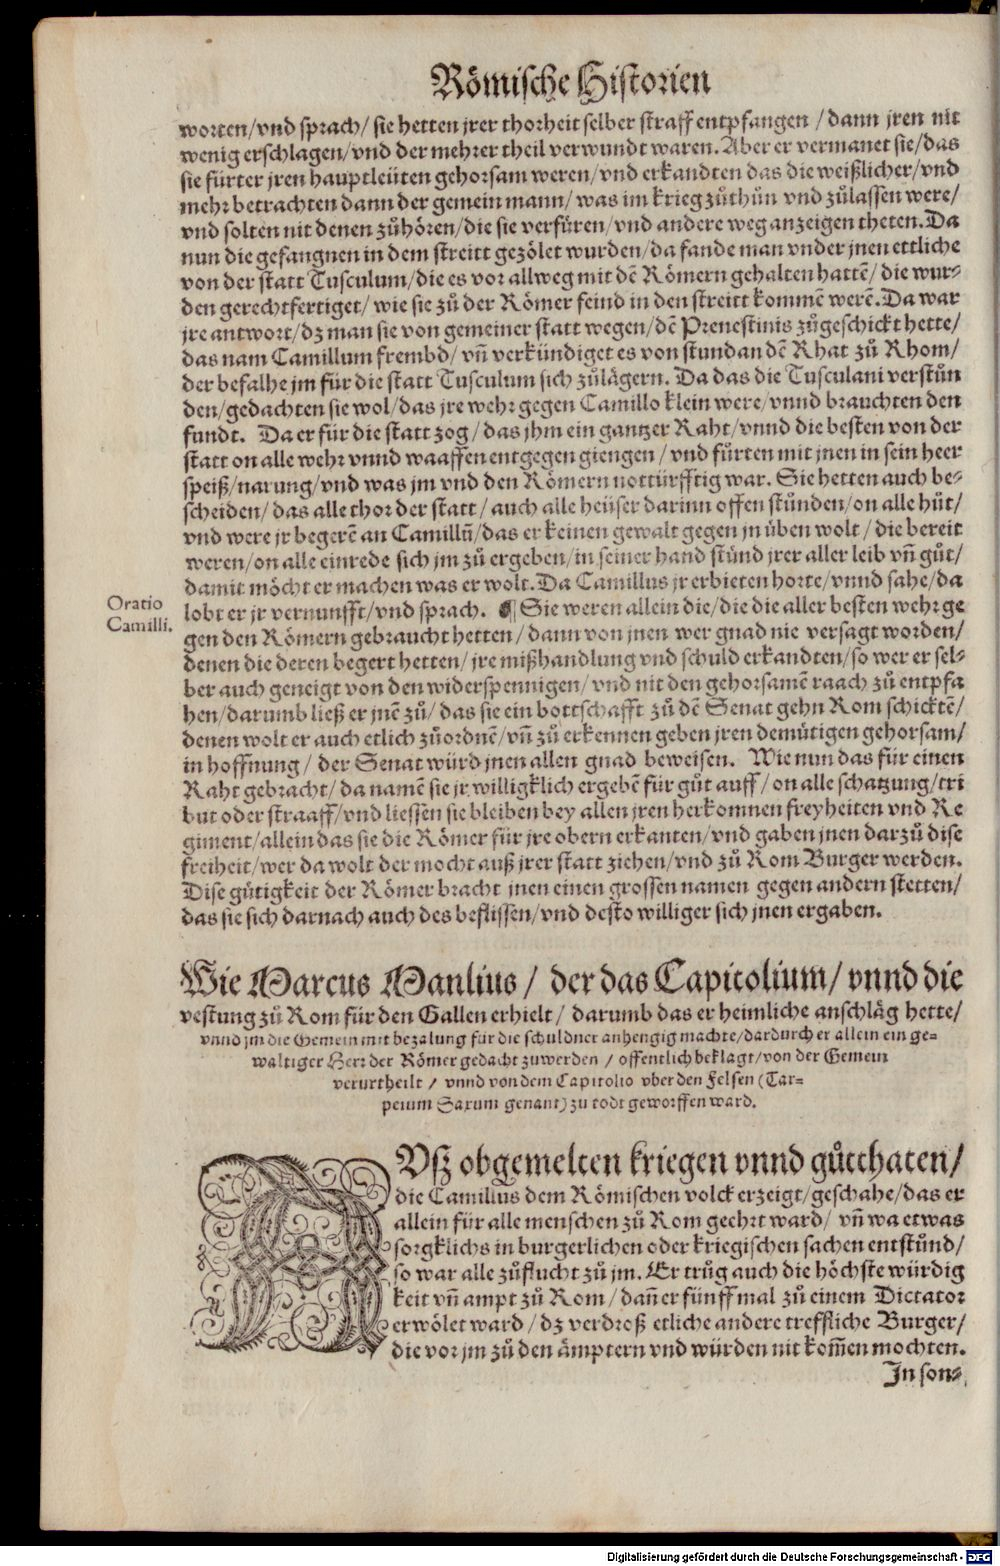 Römische Historien
worten/vnd sprach/ sie hetten jrer thorheit selber straff entpfangen /dann jren nit
wenig erschlagen/vnd der mehrer theil verwundt waren. Aber er vermanet sie/das
sie fürter jren hauptleüten gehorsam weren/vnd erkandten das die weißlicher/vnd
mehr betrachten dann der gemein mann/ was im krieg zůthůn vnd zůlassen were/
vnd solten nit denen zůhören/die sie verfüren/vnd andere weg anzeigen theten. Da
nun die gefangnen in dem streitt gezölet wurden/da fande man vnder jnen ettliche
von der statt Tusculum/die es vor allweg mit dẽ Römern gehalten hattẽ/ die wur⸗
den gerechtfertiget/ wie sie zů der Römer feind in den streitt kommẽ werẽ. Da war
jre antwort/dz man sie von gemeiner statt wegen/dẽ Prenestinis zůgeschickt hette/
das nam Camillum frembd/ vñ verkündiget es von stundan dẽ Rhat zů Rhom/
der befalhe jm für die statt Tusculum sich zůlägern. Da das die Tusculani verstůn
den/gedachten sie wol/das jre wehr gegen Camillo klein were/vnnd brauchten den
fundt. Da er für die statt zog/das jhm ein gantzer Raht/vnnd die besten von der
statt on alle wehr vnnd waaffen entgegen giengen / vnd fürten mit jnen in sein heer
speiß/narung/vnd was jm vnd den Römern nottürfftig war. Sie hetten auch be⸗
scheiden/das alle thor der statt/auch alle heüser darinn offen stůnden/on alle hůt/
vnd were jr begerẽ an Camillũ/das er keinen gewalt gegen jn üben wolt / die bereit
weren/on alle einrede sich jm zů ergeben/in seiner hand stůnd jrer aller leib vñ gůt/
damit möcht er machen was er wolt. Da Camillus jr erbieten horte/vnnd sahe/da
lobt er jr vernunfft/vnd sprach. ¶ Sie weren allein die/die die aller besten wehr ge
Oratio
Camilli.
gen den Römern gebraucht hetten/ dann von jnen wer gnad nie versagt worden/
denen die deren begert hetten/ jre mißhandlung vnd schuld erkandten/so wer er sel⸗
ber auch geneigt von den widerspennigen/ vnd nit den gehorsamẽ raach zů entpfa
hen/darumb ließ er jnẽ zů/ das sie ein bottschafft zů dẽ Senat gehn Rom schicktẽ/
denen wolt er auch etlich zůordnẽ/vñ zů erkennen geben jren demütigen gehorsam/
in hoffnung/ der Senat würd jnen allen gnad beweisen. Wie nun das für einen
Raht gebracht/da namẽ sie jr willigklich ergebẽ für gůt auff/on alle schatzung/tri
but oder straaff/vnd liessen sie bleiben bey allen jren herkomnen freyheiten vnd Re
giment/allein das sie die Römer für jre obern erkanten/vnd gaben jnen darzů dise
freiheit/wer da wolt der mocht auß jrer statt ziehen/vnd zů Rom Burger werden.
Dise gütigkeit der Römer bracht jnen einen grossen namen gegen andern stetten/
das sie sich darnach auch des beflissen/vnd desto williger sich jnen ergaben.
Wie Marcus Manlius/ der das Capitolium/ vnnd die
vestung zů Rom für den Gallen erhielt/ darumb das er heimliche anschläg hette/
vnnd jm die Gemein mit bezalung für die schuldner anhengig machte/dardurch er allein ein ge⸗
waltiger Herr der Römer gedacht zuwerden / offentlich beklagt/von der Gemein
verurtheilt / vnnd von dem Capitolio vber den Felsen (Tar⸗
peium Saxum genant) zu todt geworffen ward.
AVsz obgemelten kriegen vnnd gůtthaten/
die Camillus dem Römischen volck erzeigt/geschahe/das er
allein für alle menschen zů Rom geehrt ward/ vñ wa etwas
sorgklichs in burgerlichen oder kriegischen sachen entstůnd/
so war alle zůflucht zů jm. Er trůg auch die höchste würdig
keit vñ ampt zů Rom/ dañ er fünff mal zů einem Dictator
erwölet ward/dz verdroß etliche andere treffliche Burger/
die vor jm zů den ämptern vnd würden nit kom̃en mochten.
In son⸗
Digitalisierung gefördert durch die Deutsche Forschungsgemeinschaft - DFG